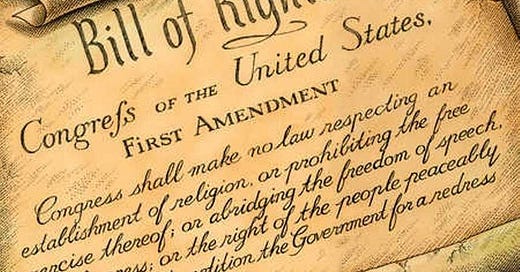 Bill of Righ
Congreſs OF THE United States,
FIRST AMENDMENT
Congress shall make no law respecting an
establishment of religion, or prohibiting the free
ercise thereof; or abridging the freedom of speech,
ess; or the right of the people peaceably
tition the Government for a redress